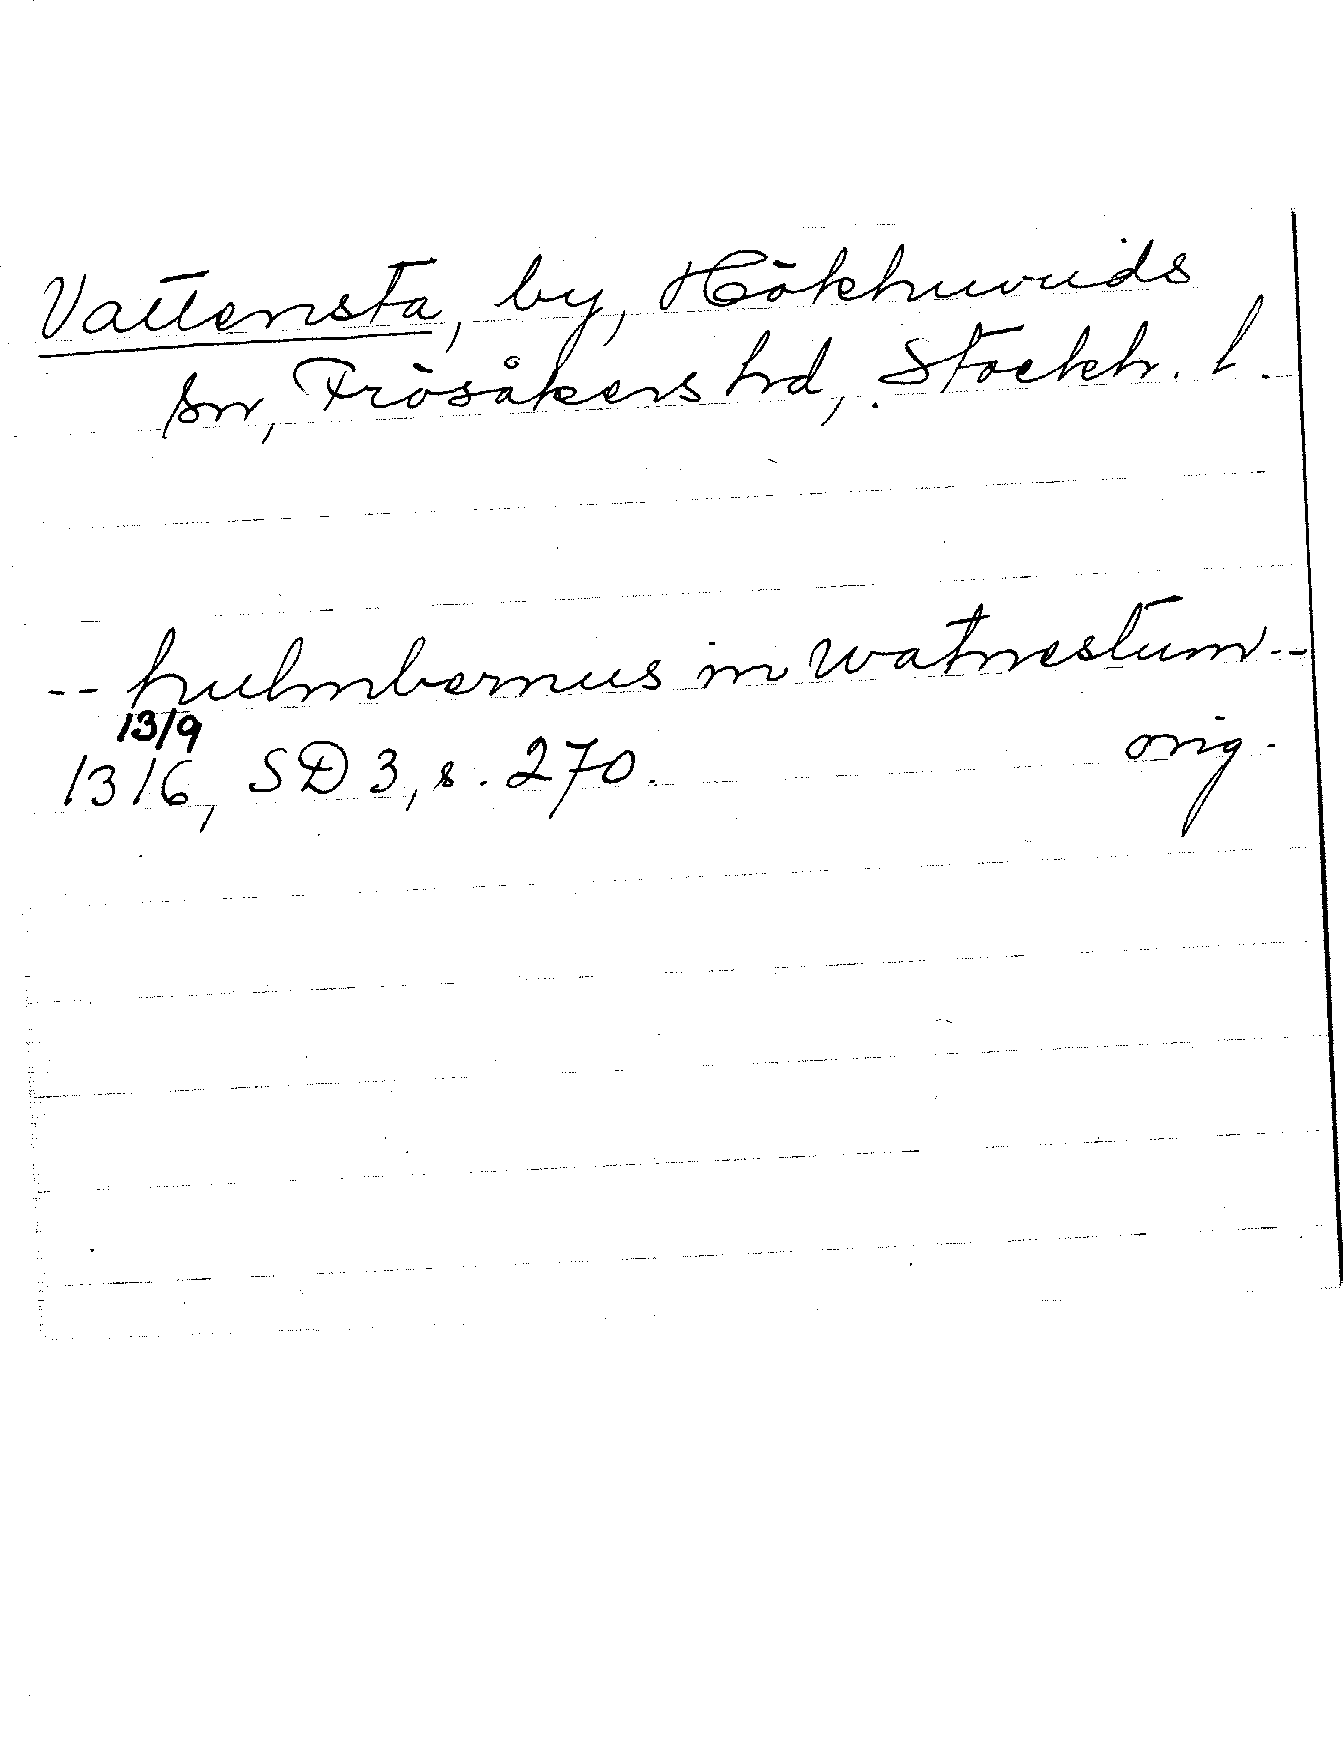 Vattensta, by, Hökhuvuds
sn, Frösåkers hd, Stockh. l.
-- hulmbernus in watnestum --
13/9
1316, SD 3, s. 270. orig.